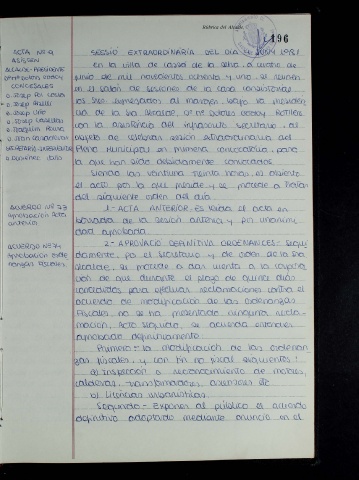 Rúbrica del Alcalde,
196
ACTA Nº 9
ASISTEN
ALCALDE-PRESIDENTE
CONCEJALES
D. Josep
D. Josep
D. Josep
D. Josep
D. Joaquim
D. Joan
SECRETARIO-INTERVENTOR
ACUERDO Nº 73
Aprobación Acta
anterior
ACUERDO Nº 74
Aprobación Orde
nanzas Fiscales.
SESSIÓ EXTRAORDINARIA DEL DIA 4 JUNY 1981
En la villa de a cuatro de
junio de mil novecientos ochenta y uno, se reunen
en el salón de sesiones de la casa consistorial,
los Sres expresados al margen, bajo la presiden
cia de la Sra Alcalde,
con la asistencia del infrascrito Secretario, al
objeto de celebrar sesión extraordinaria del
Pleno Municipal en primera convocatoria, para
la que han sido debidamente convocados.
Siendo las veintiuna treinta horas, es abierto
el acto por la que preside y se procede a tratar
del siguiente orden del día
1-ACTA ANTERIOR: Es leída el acta en
borrador de la sesión anterior y por unanimi
dad aprobada.
2-APROVACIÓ DEFINITIVA ORDENANCES: Segui
damente, por el Secretario y de orden de la Sra
Alcalde, se procede a dar cuenta a la Corpora
ción de que durante el plazo de quince días
concedidos para efectuar reclamaciones contra el
acuerdo de modificación de las Ordenanzas
Fiscales, no se ha presentado ninguna recla-
mación; Acto seguido, se acuerda entonces
aprobar definitivamente:
Primero:- la modificación de las ordenan
zas fiscales, y con fin no fiscal siguientes:
a) Inspección o reconocimiento de motores,
calderas, transformadores, ascensores etc
b) Licencias urbanísticas.
Segundo:- Exponer al público el acuerdo
definitivo adoptado mediante anuncio en el